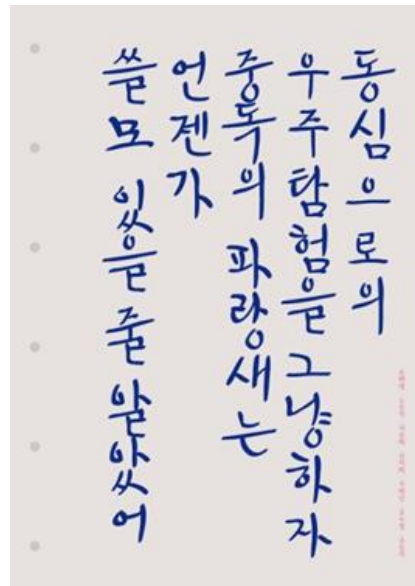 동심으로의
우주탐험을 그냥하자
중독의 파랑새는
언젠가
쓸모 있을 줄 알았어